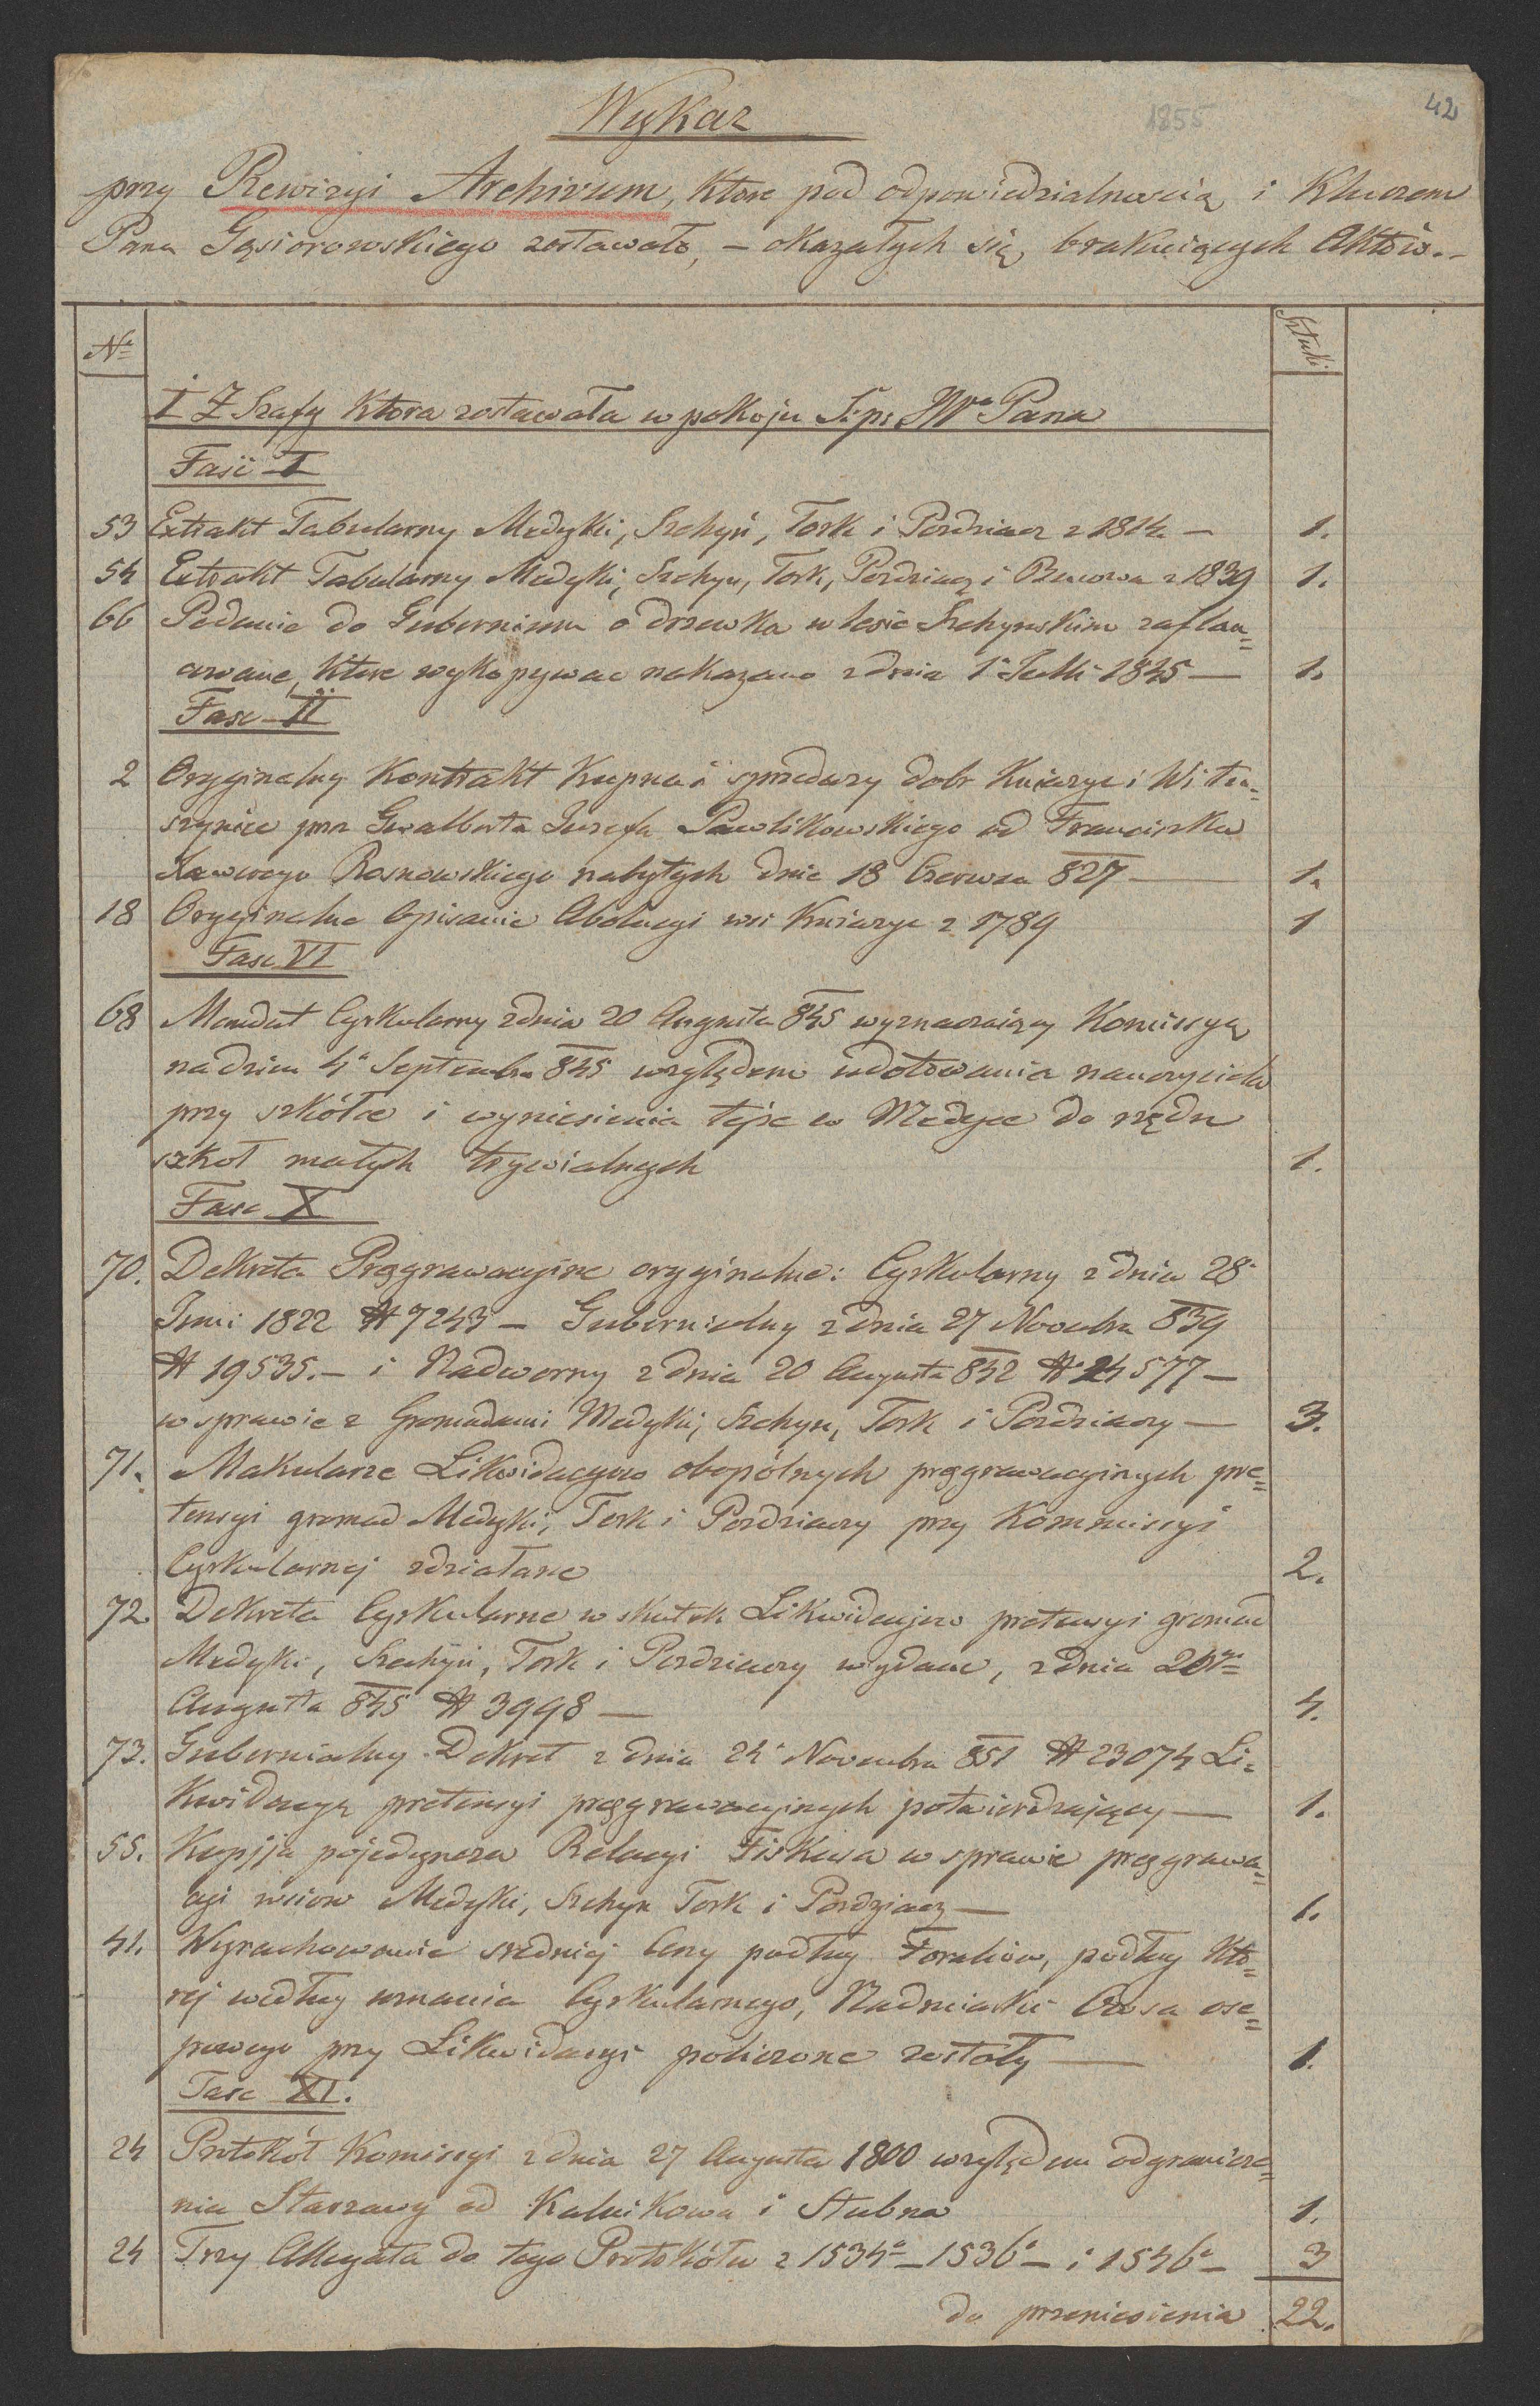 42
1855
Wykaz
przy Rewizyi Archivum, które pod odpowiedzialnością i Kluczem
Pana Gąsiorowskiego zostawało, – okazałych się brakuiących Aktów.–
Nº
Sztuki
I Z Szafy Ktora zostawała w pokoju S. p. JWº Pana
Fasc I
53 Extrakt Tabularny Medyki, Szechyń, Tork i Pozdziacz z 1814 – 1.
54 Extrakt Tabularny Medyki, Szechyn, Tork, Pozdziacz i Bucowa z 1839 1.
66 Podanie do Gubernium o drzewka w lesie Szechynskim zaflan=
cowane, ktore wykopywac nakazano z dnia 1º Julli 1845 – 1.
Fasc II
2 Oryginalny Kontrakt Kupna i sprzedaży dobr Kniazyc i Witu=
szynice prze Gwalberta Jozefa Pawlikowskiego od Franciszka
Xawerego Rosnowskiego nabytych dnia 18 Czerwca 827 – 1.
18 Oryginalne Opisanie Abolucyi wsi Kniazyc z 1789 1
Fasc VI
68 Mandat Cyrkularny z dnia 20 Augusta 845 wyznaczaiący Komissyą
na dzien 4º Septembra 845 względem udotowania nauczyciela
przy szkółce i wyniesienia tejże w Medyce do rzędu
szkoł małych trywialnych 1.
Fasc X
70. Dekreta Pręgrawacyjne oryginalne: Cyrkularny z dnia 28º
Juni 1822 N 7243 – Gubernialny z dnia 27 Novembra 839
N 19535. – i Nadworny z dnia 20 Augusta 842 N 24577 –
w sprawie z Gromadami Medyki, Szechyn, Tork i Pozdziaczy – 3.
71. Makularze Likwidacyów obopólnych pręgrawacyinych pre=
tensyi gromad Medyki, Tork i Pozdziaczy przy Kommissyi
Cyrkularnej zdziałane 2.
72. Dekreta Cyrkularne w skutek Likwidacjow pretensyi gromad
Medyki, Szechyń, Tork i Pozdziaczy wydane, z dnia
Augusta 845 N 3998 – 4.
73. Gubernialny Dekret z dnia 24º Novembra 851 N 23074 Li=
kwidacyą pretensyi pręgrawacyinych potwierdzający – 1.
55. Kopjja pojedyncza Relacyi Fiskusa w sprawie pręgrawa=
cyi wsiow Medyki, Szechyn Tork i Pozdziacz – 1.
41. Wyrachowanie sredniej Ceny podług Foraliow, podług któ=
rej według uznania Cyrkularnego, Nadmiarki Owsa ose=
powego przy Likwidacyi policzone zostały – 1.
Fasc XI.
24 Protokół Komissyi z dnia 27 Augusta 1800 względem odgranicze=
nia Starzawy od Kalnikowa i Stubna 1.
24 Trzy Allegata do tego Protokółu z 1534º – 1536º – i 1546º – 3
do przeniesienia 22.